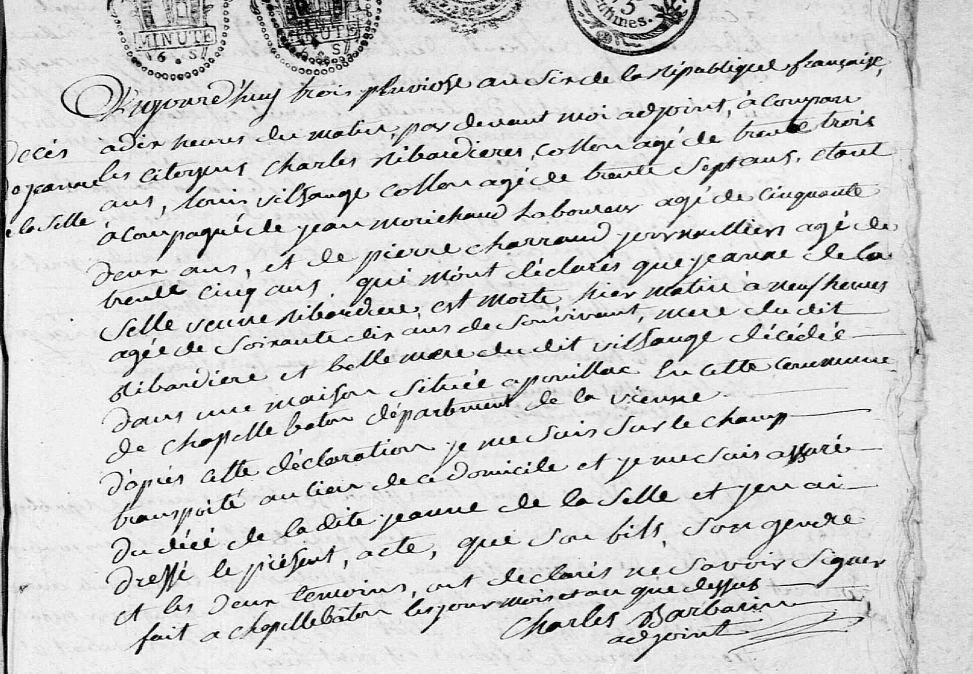 MINUTE
MINUTE
5
centimes.
Décès
de jeanne
de la Selle
Aujourd'huy trois pluviose an Six de la République française,
a dix heures du matin, par devant moi adjoint, à Comparu
les citoyens Charles Ribardieres, collon agé de trente trois
ans, Louis villange collon agé de trente Sept ans, étant
à Compagné de jean morichaud Laboureur agé de Cinquante
deux ans, et de pierre Charraud journaillier agé de
trente cinq ans, qui m'ont déclarés que jeanne de la
Selle veuve Ribardiere, est morte, hier matin à neuf heures
agée de Soixante dix ans de Son vivant, mere du dit
Ribardiere et belle mere du dit villange décédée
dans une maison Située a pouillac En cette commune
de chapelle baton département de la vienne
d'après cette déclaration je me Suis Sur le champ
transporté au lieu de ce domicile et je me Suis assuré
du décé de la dite jeanne de la Selle et j'en ai
dressé le présent, acte, que Son fils, Son gendre
et les deux temoins, ont declarés ne Savoir Signer
fait a chapelle bâton les jour mois et an que dessus
Charles Barbarin
adjoint